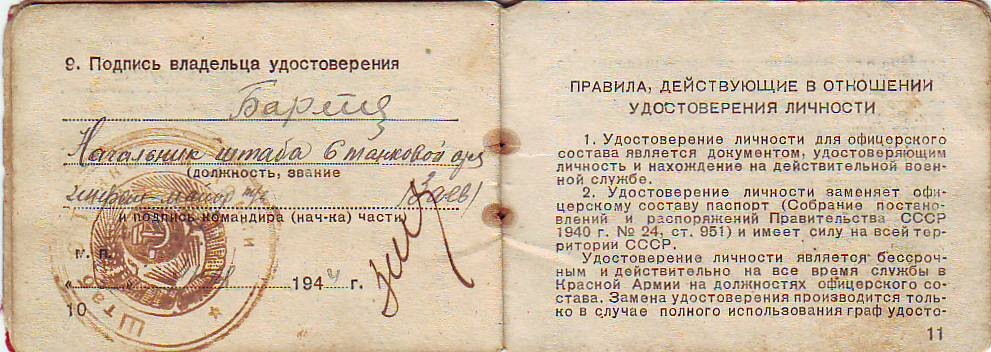 9. Подпись владельца удостоверения
Начальник штаба 6 танковой
(должность, звание
майор
и подпись командира (нач-ка) части)
м. п.
1944 г.
Штаб
10
ПРАВИЛА, ДЕЙСТВУЮЩИЕ В ОТНОШЕНИИ
УДОСТОВЕРЕНИЯ ЛИЧНОСТИ
1. Удостоверение личности для офицерского
состава является документом, удостоверяющим
личность и нахождение на действительной воен-
ной службе.
2. Удостоверение личности заменяет офи-
церскому составу паспорт (Собрание постано-
влений и распоряжений Правительства СССР
1940 г. № 24, ст. 951) и имеет силу на всей тер-
ритории СССР.
Удостоверение личности является бессроч-
ным и действительно на все время службы в
Красной Армии на должностях офицерского со-
става. Замена удостоверения производится толь-
ко в случае полного использования граф удосто-
11